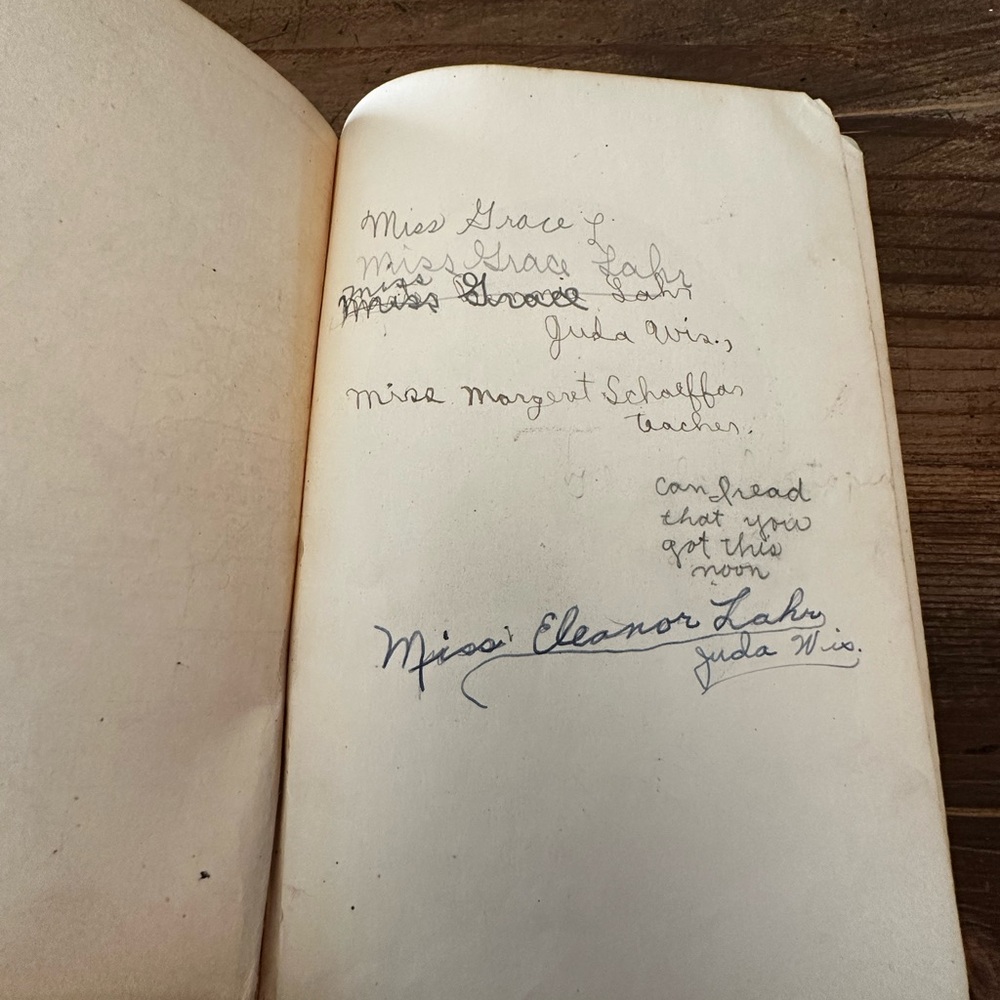 Miss Grace L
Miss Grace Lahr
Miss
Miss Gracie Lahr
Juda Wis.,
Miss Margeret Schaeffar
teacher.
can I read
that you
got this
noon
Miss Eleanor Lahr
Juda Wis.